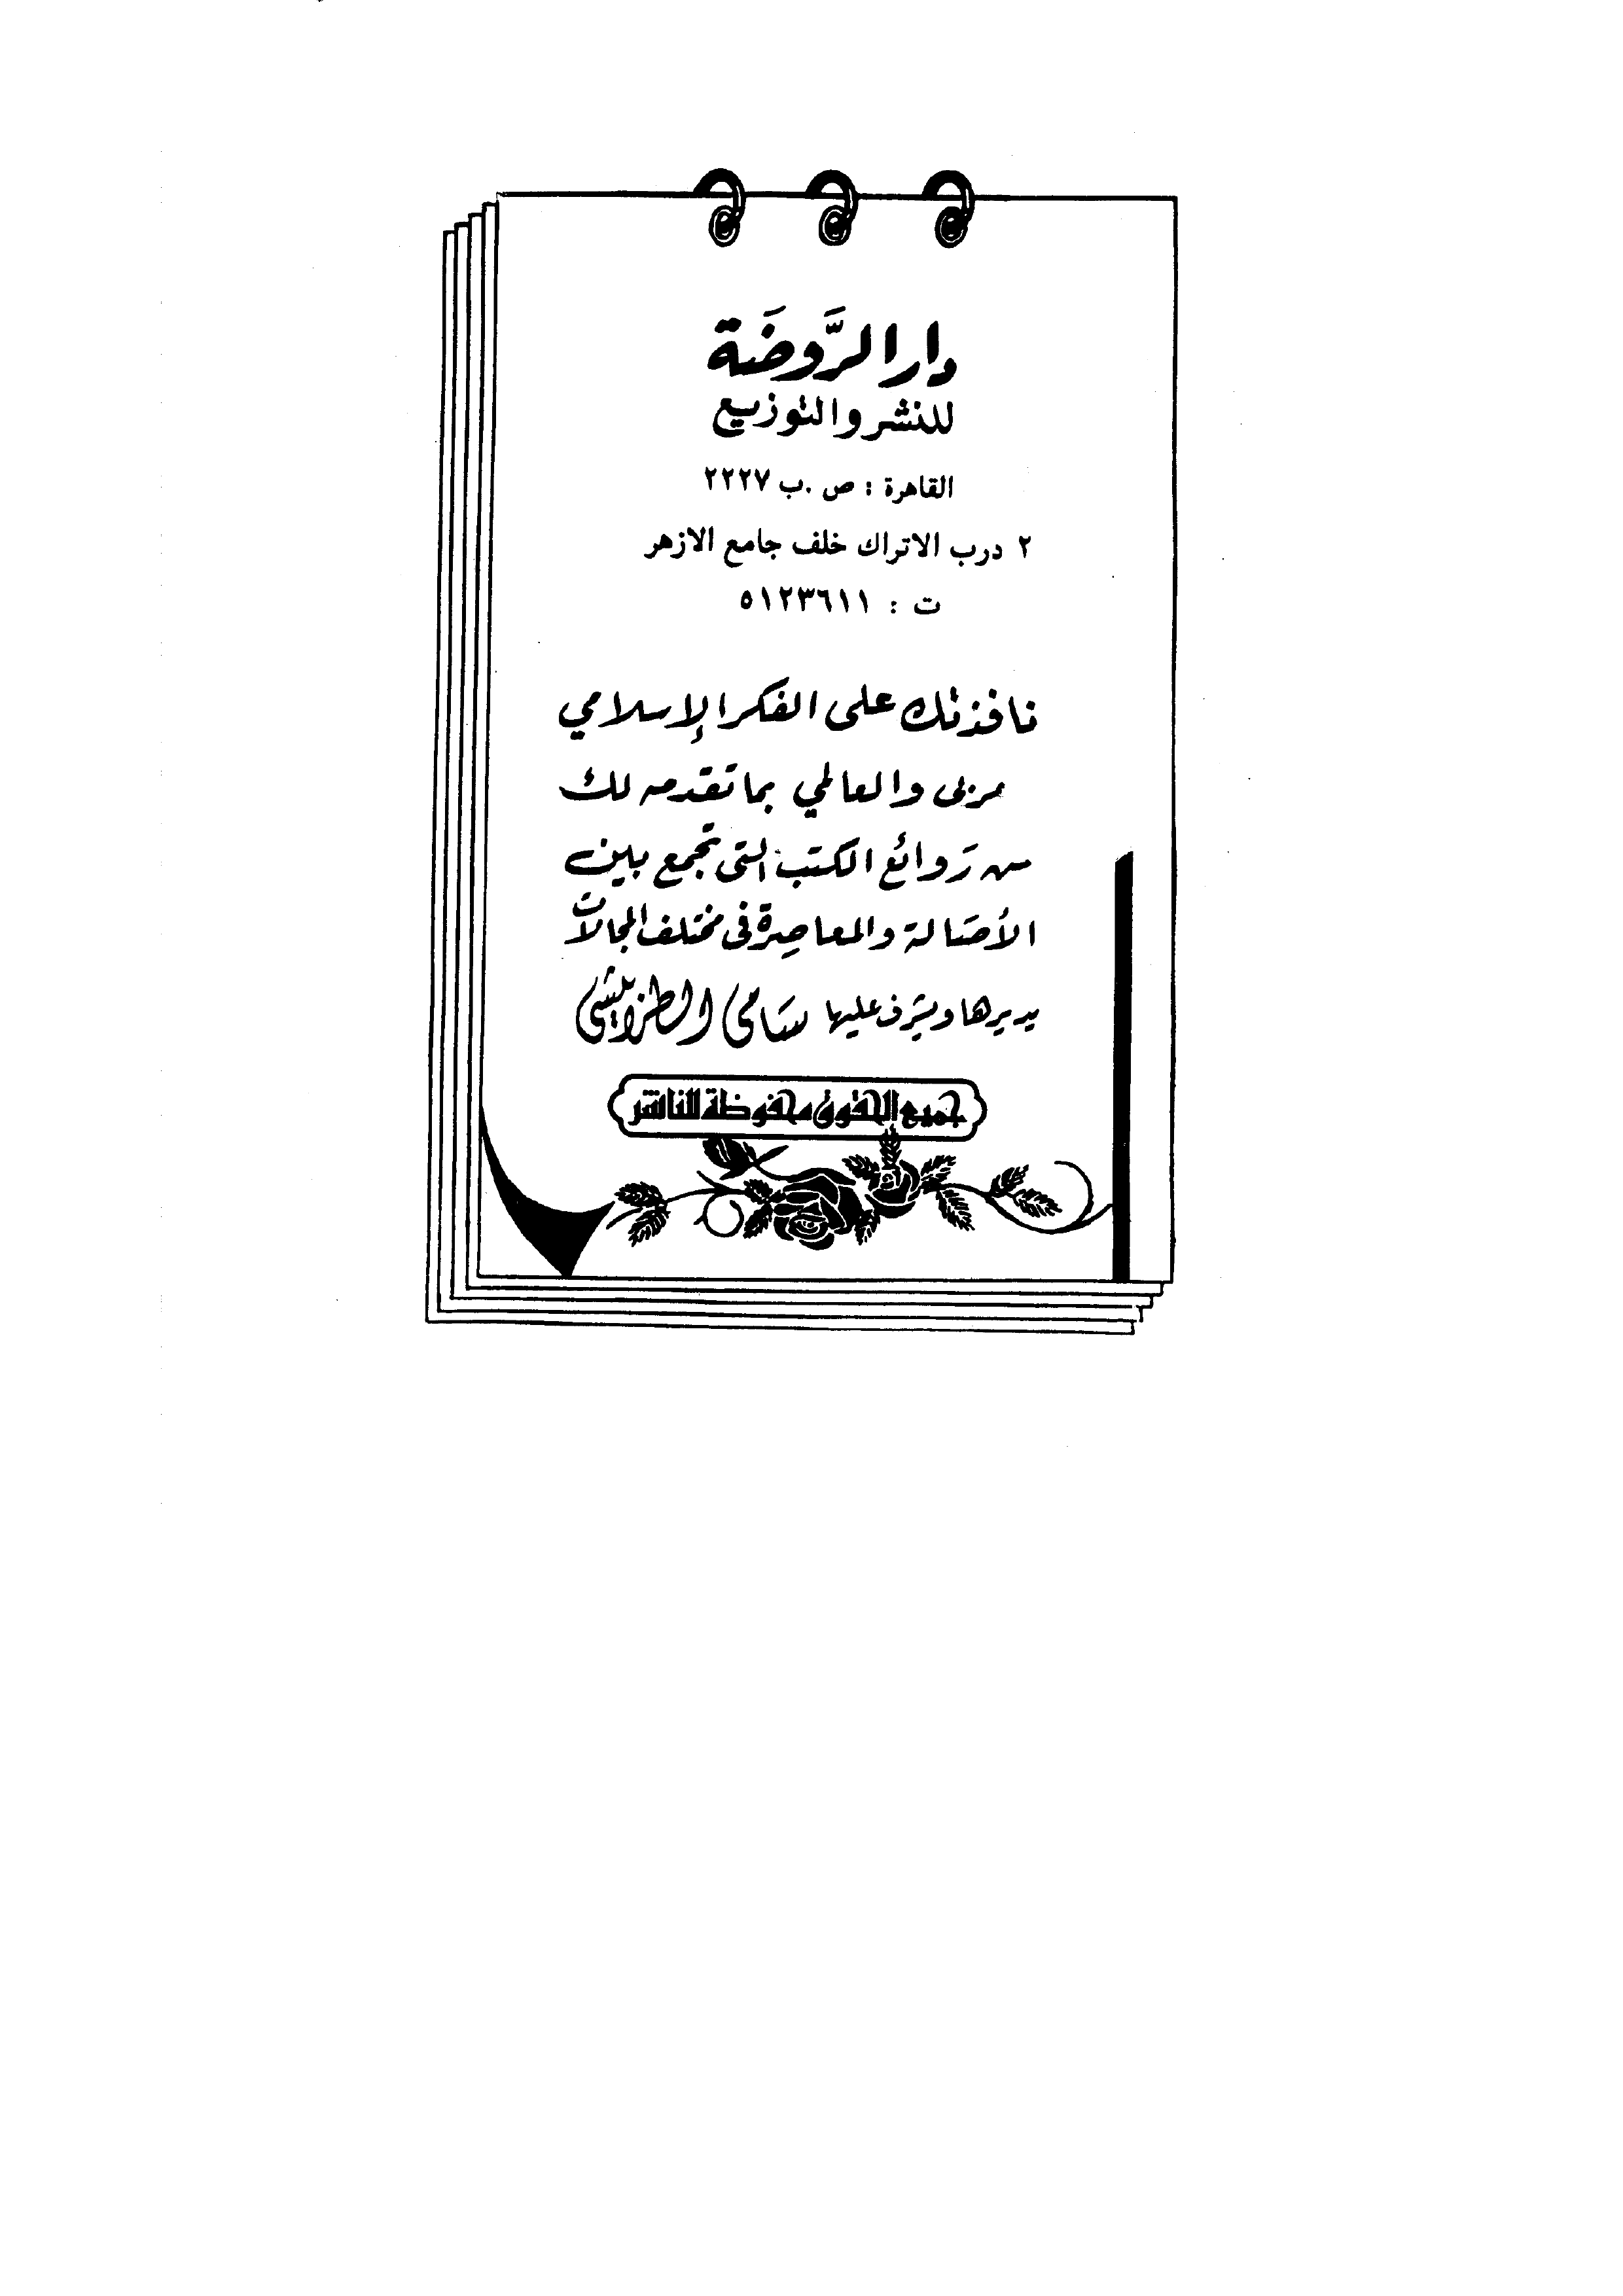 دار الرَّوضَة
للنشر والتوزيع
القاهرة : ص .ب ٢٢٢٧
٢ درب الاتراك خلف جامع الازهر
ت : ٥١٢٣٦١١
نافذتك على الفكر الإسلامي
والعالمي بما تقدمه لك
من رَوائع الكتب التى تجمع بين
الأصَالة والمعاصِرة فى مختلف المجالات
يديرها ويشرف عليها سَامى
جميع الحقوق محفوظة للناشر